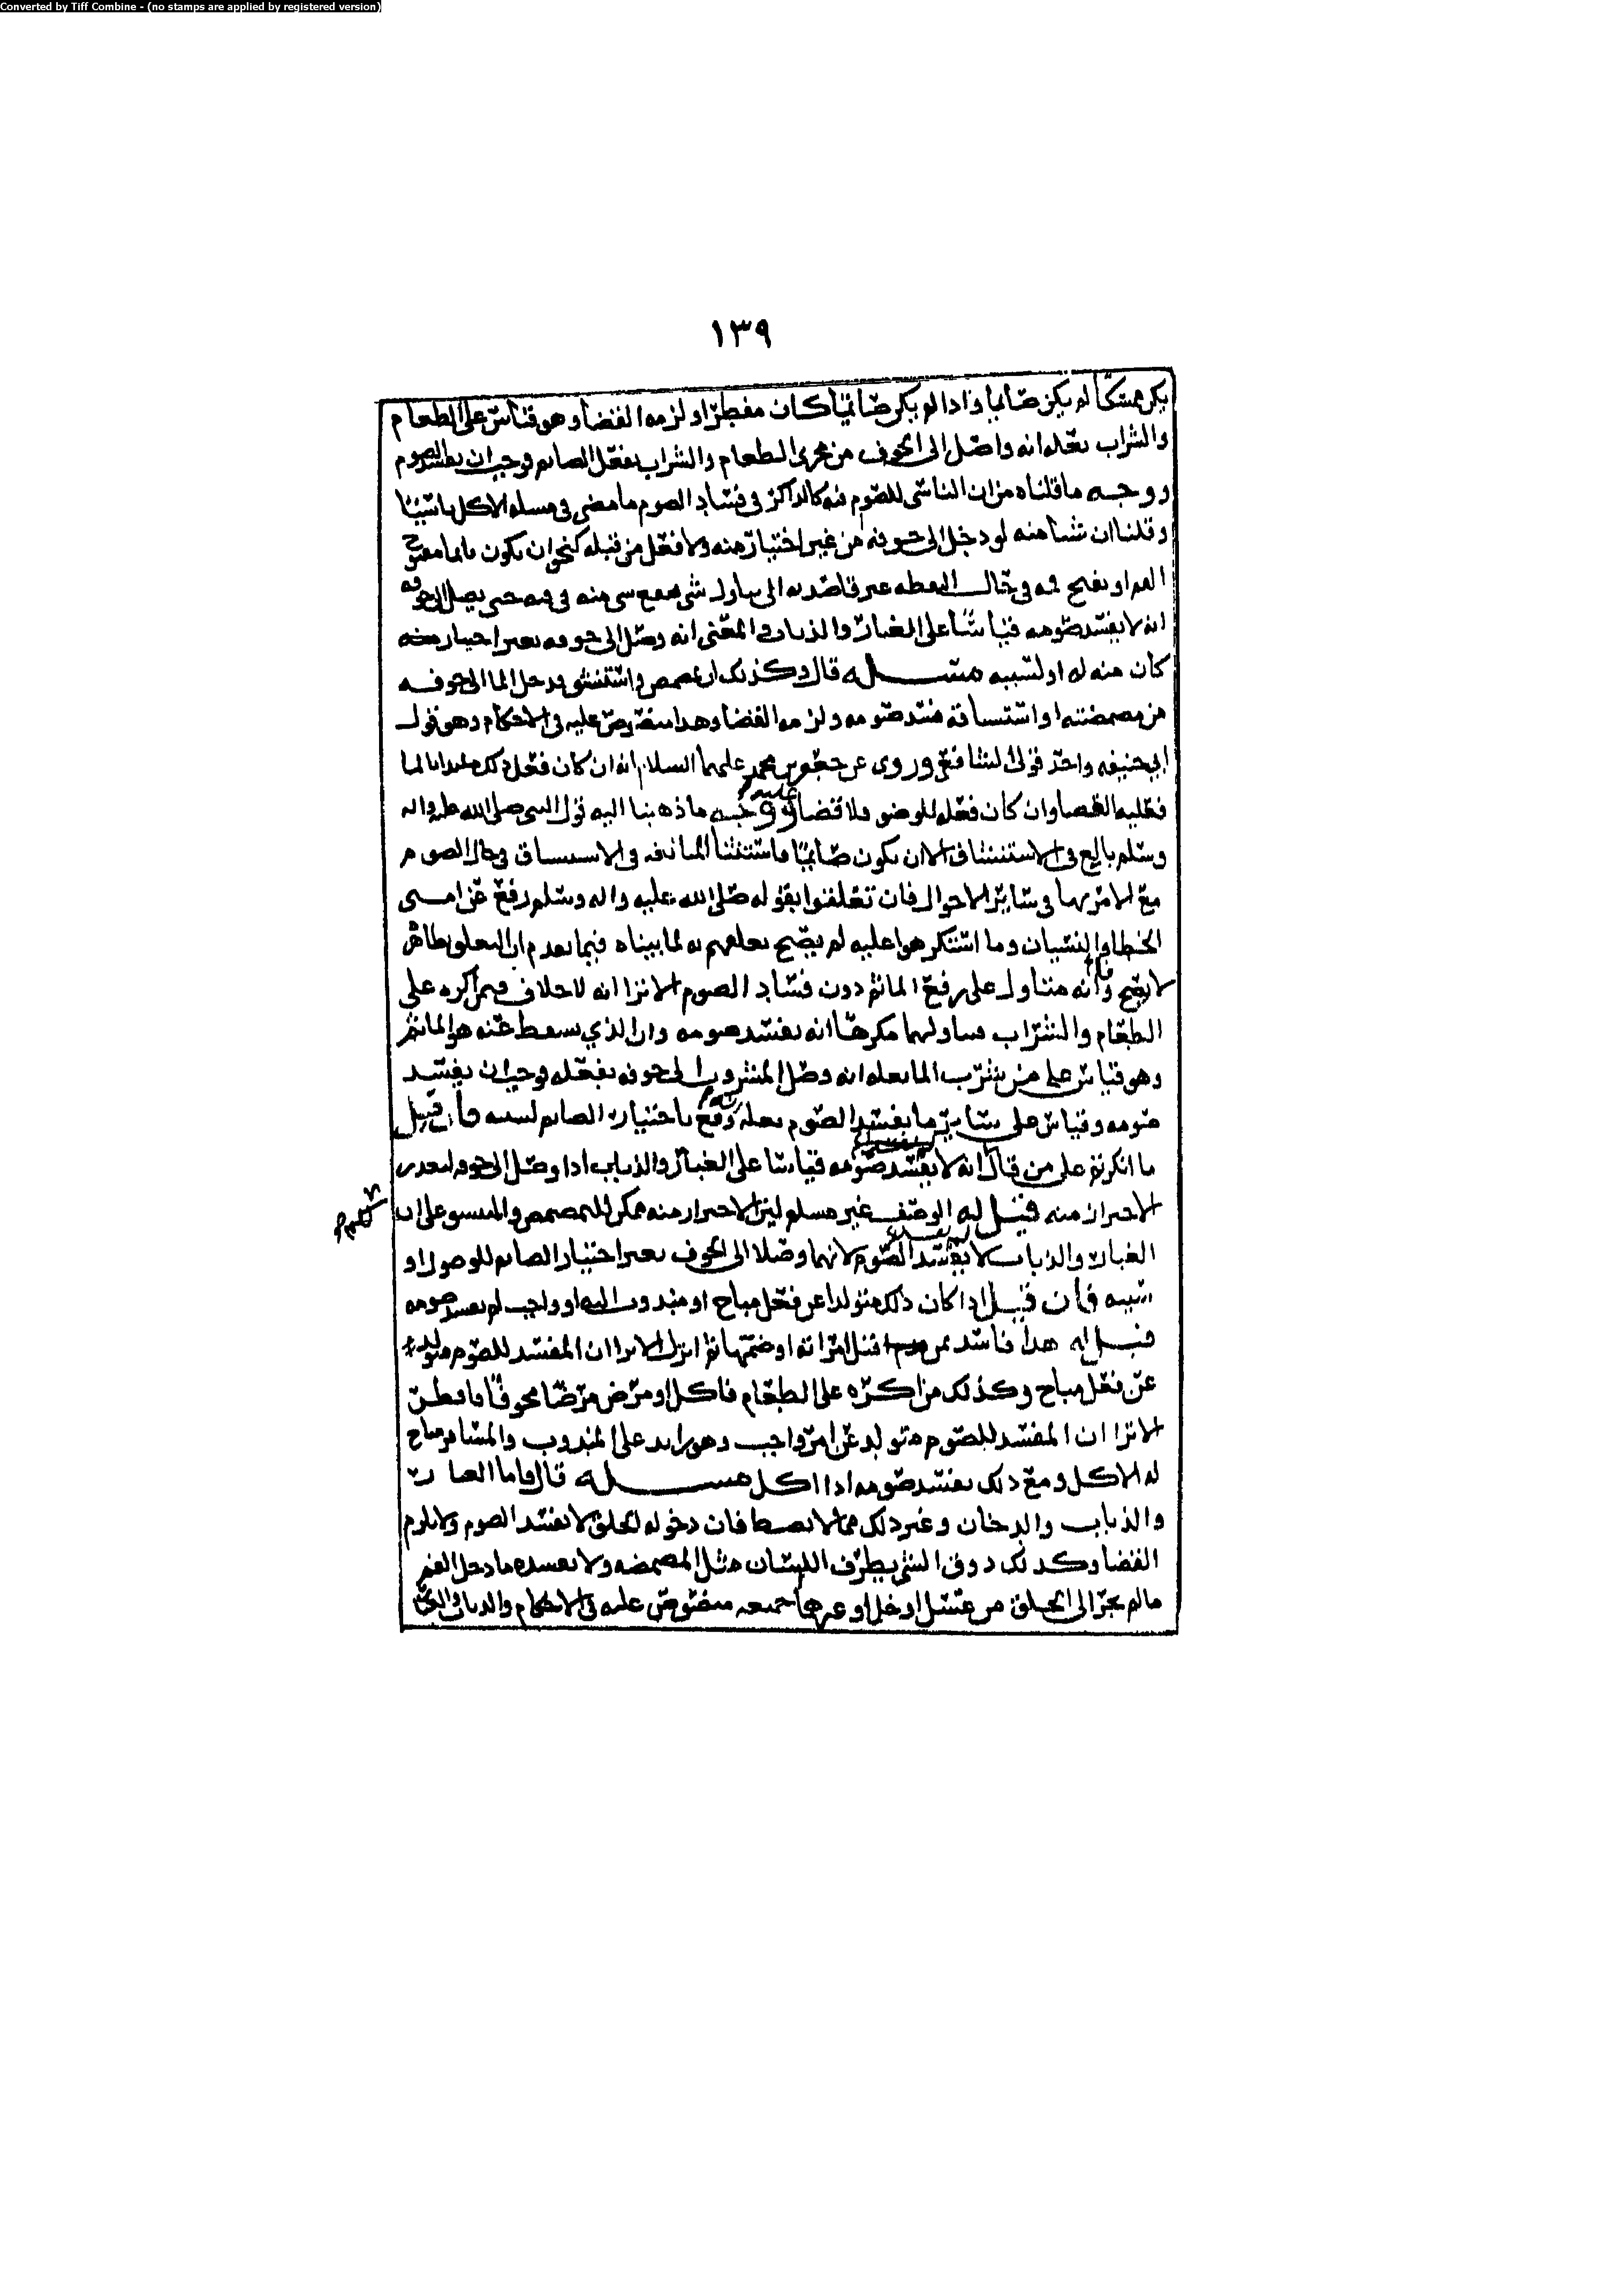 Converted by Tiff Combine - (no stamps are applied by registered version)
١٣٩
يكن ممسكا لم يكن صائما واذا لم يكن صائما كان مفطرا ولزمه القضا وهو قياس على الطعام
والشراب بعله انه واصل الى الجوف من مجرى الطعام والشراب بفعل الصائم فوجب ان يفسد الصوم
ووجه ما قلناه من ان الناسي للصوم فيه كالذاكر في فساد الصوم ما مضى في مسله الاكل ناسيا
وقلنا ان شيا منه لو دخل الى جوفه من غير اختيار منه ولا فعل من قبله كنحو ان يكون نايما مفتوح
الفم او يفتح فمه في حال اليقظه غير قاصد به الى تناول شي فيقع شي منه في فيه حتى يصل الى جوفه
انه لا يفسد صومه قياسا على الغبار والذباب والمعنى انه وصل الى جوفه بغير اختيار منه
كان منه له او لسببه مسله قال وكذلك ان تمضمض واستنشق فدخل الما الى جوفه
من مضمضته او استنشاقه فسد صومه ولزمه القضا وهذا منصوص عليه في الاحكام وهو قول
ابي حنيفه واحد قولي الشافعي وروى عن جعفر بن محمد عليهما السلام انه ان كان فعل ذلك
فعليه القضا وان كان فعله للوضو فلا قضا عليه ووجه ما ذهبنا اليه قول النبي صلى الله عليه واله
وسلم بالغ في الاستنشاق الا ان يكون صائما فاستثنا المبالغه في الاستنشاق في حال الصوم
مع الامر بها في سائر الاحوال فان تعلقوا بقوله صلى الله عليه واله وسلم رفع عن امتى
الخطا والنسيان وما استكرهوا عليه لم يصح تعلقهم به لما بيناه فيما تقدم ان التعلق بظاهره
لا يصح وانه متناول على رفع الماثم دون فساد الصوم الا ترا انه لا خلاف فيمن اكره على
الطعام والشراب فتناولهما مكرها انه يفسد صومه وان الذي يسقط عنه هو الماثم
وهو قياس على من يشرب الما بعله انه وصل المشروب الى جوفه بفعله فوجب ان يفسد
صومه وقياس على سائر ما يفسد الصوم بعله انه وقع باختيار الصائم لسببه فان قيل
ما انكرتم على من قال انه لا يفسد صومه قياسا على الغبار والذباب اذا وصل الى جوفه لتعذر
الاحتراز منه قيل له الوصف غير مسلم لان الاحتراز منه ممكن للمتمضمض والمستنشق على ان
الغبار والذباب لا يفسد الصوم لانهما وصلا الى الجوف بغير اختيار الصائم للوصول او
سببه فان قيل اذا كان ذلك متولدا عن فعل مباح او مندوب اليه او واجب لم يفسد صومه
قيل له هذا فاسد بمن قبل امراته او ضمها ثم انزل الا ترا ان المفسد للصوم متولد
عن فعل مباح وكذلك من اكره على الطعام فاكل او مرض مرضا مخوفا فافطر
الا ترا ان المفسد للصوم متولد عن امر واجب وهو زايد على المندوب والمسافر مباح
له الاكل ومع ذلك يفسد صومه اذا اكل مسله قال واما الغبار
والذباب والدخان وغير ذلك مما لا يضبط فان دخوله الحلق لا يفسد الصوم ولا يلزم
القضا وكذلك ذوق الشي بطرف اللسان مثل المضمضه ولا يفسده ما دخل الفم
مالم يجز الى الحلق من عسل او خل او غيرهما جميعه منصوص عليه في الاحكام